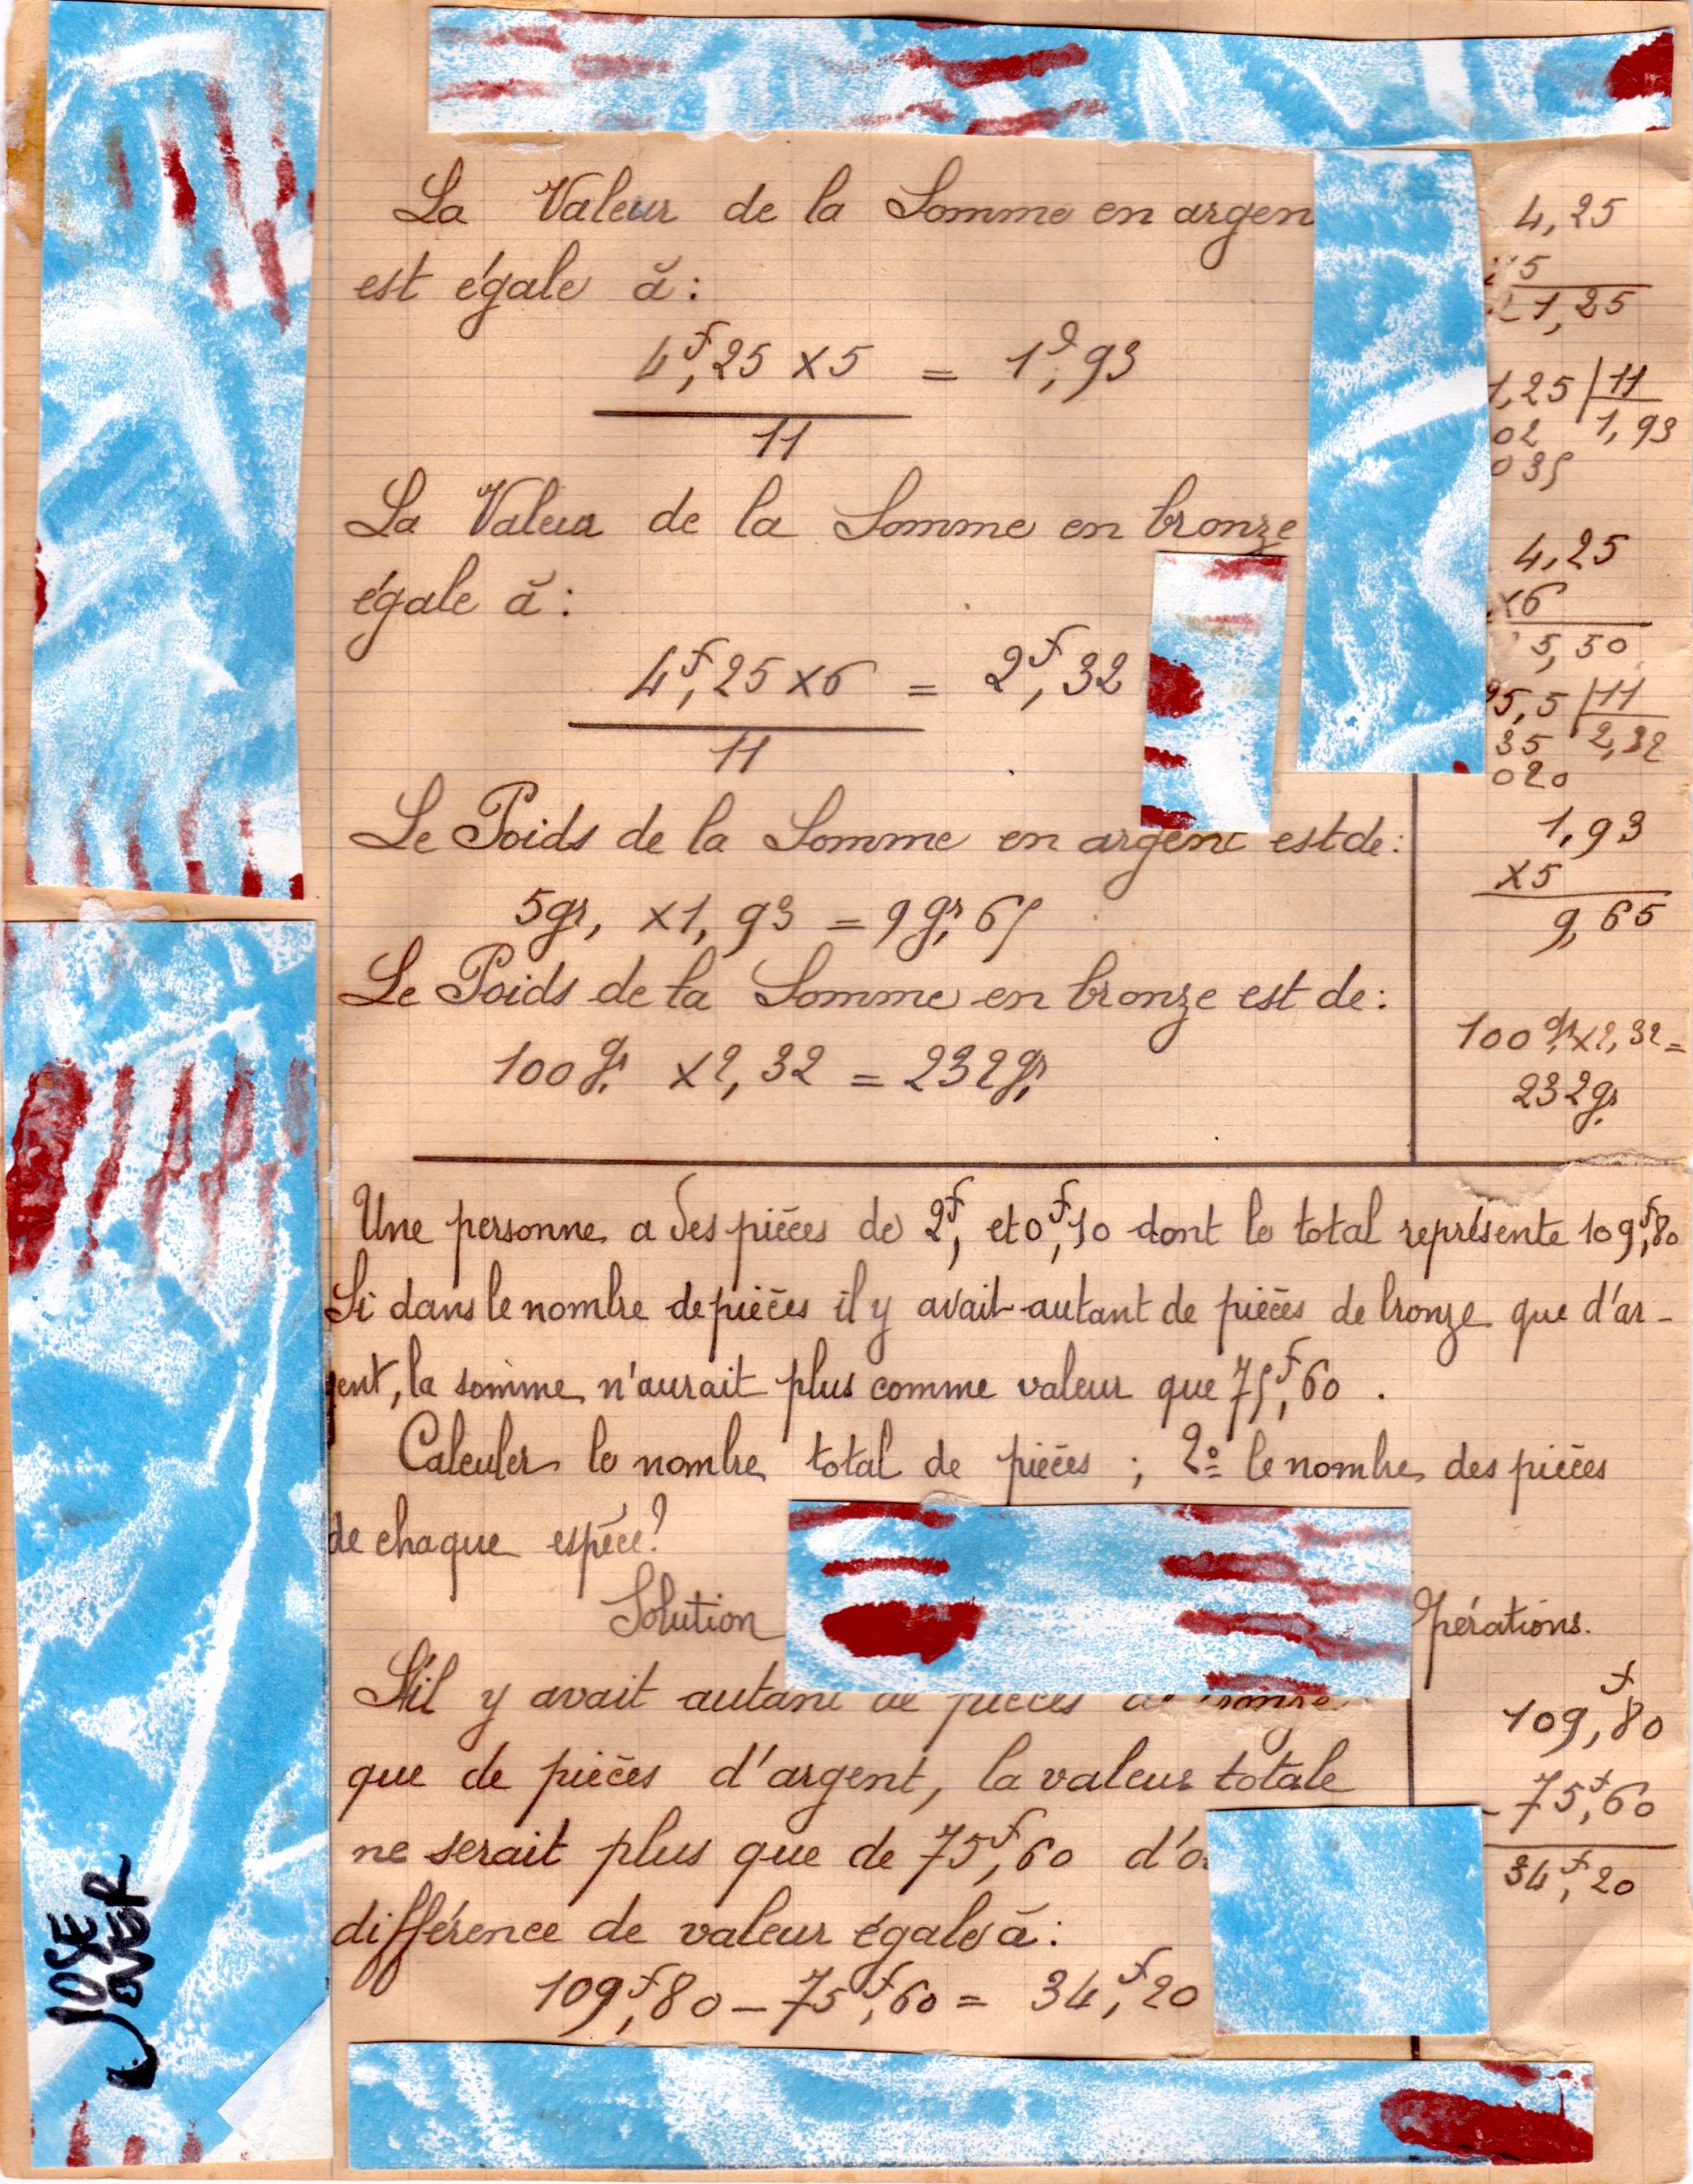 La Valeur de la Somme en argen
est égale à:
4f,25 x5 = 1f,93
11
La Valeur de la Somme en bronze
égale à:
4f,25 x6 = 2f,32
11
Le Poids de la Somme en argent est de:
5gr, x1,93 = 9gr,65
Le Poids de la Somme en bronze est de:
100gr x2,32 = 232gr
4,25
x5
21,25
1,25 11
02 1,93
035
4,25
x6
5,50
25,5 11
35 2,32
020
1,93
x5
9,65
100gr x2,32=
232gr
Une personne a des pièces de 2f, et 0f,10 dont le total représente 109f,80
Si dans le nombre de pièces il y avait autant de pièces de bronze que d'ar-
gent, la somme n'aurait plus comme valeur que 75f,60.
Calculer le nombre total de pièces ; 2º le nombre des pièces
de chaque espèce?
Solution
Opérations.
S'il y avait autant de pièces de bronze
que de pièces d'argent, la valeur totale
ne serait plus que de 75f,60 d'o
différence de valeur égale à:
109f,80 - 75f,60 = 34f,20
109f,80
- 75f,60
34f,20
JOSE
JOVER